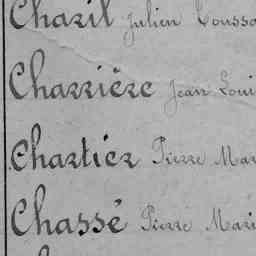 Chazil Julien Toussa
Charrière Jean Loui
Chartier Pierre Mar
Chassé Pierre Mari